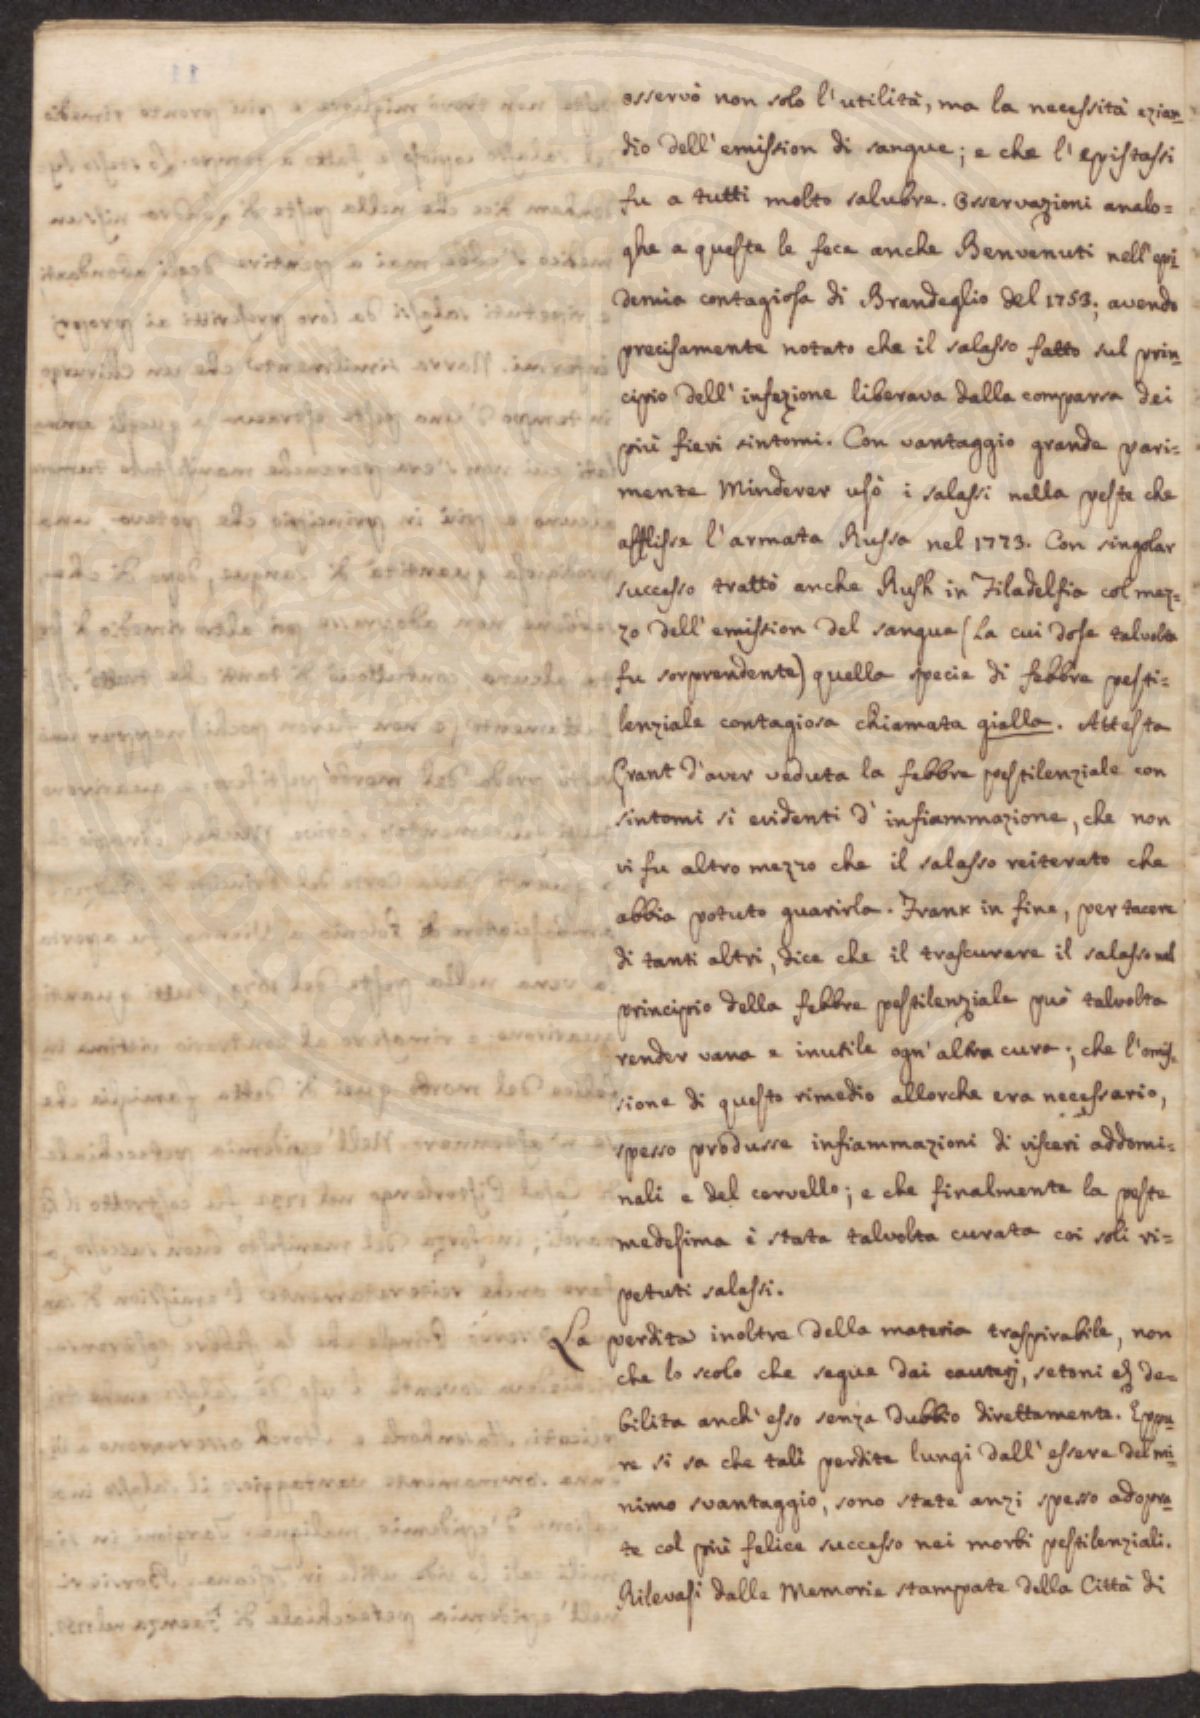 osservò non solo l'utilità, ma la necessità ezian=
dio dell'emission di sangue; e che l'epistassi
fu a tutti molto salubre. Osservazioni analo=
ghe a queste le fece anche Benvenuti nell'epi=
demia contagiosa di Brandeglio del 1753; avendo
precisamente notato che il salasso fatto sul prin=
cipio dell'infezione liberava dalla comparsa dei
più fieri sintomi. Con vantaggio grande pari=
mente Minderer usò i salassi nella peste che
afflisse l'armata Russa nel 1773. Con singolar
successo trattò anche Rush in Filadelfia col mez=
zo dell'emission del sangue (la cui dose talvolta
fu sorprendente) quella specie di febbre pesti=
lenziale contagiosa chiamata gialla. Attesta
Grant d'aver veduta la febbre pestilenziale con
sintomi sì evidenti d'infiammazione, che non
vi fu altro mezzo che il salasso reiterato che
abbia potuto guarirla. Frank in fine, per tacere
di tanti altri, dice che il trascurare il salasso nel
principio della febbre pestilenziale può talvolta
render vana e inutile ogn'altra cura; che l'omis=
sione di questo rimedio allorche era necessario,
spesso produsse infiammazioni di visceri addomi=
nali e del cervello; e che finalmente la peste
medesima è stata talvolta curata coi soli ri=
petuti salassi.
La perdita inoltre della materia traspirabile, non
che lo scolo che segue dai cauterj, setoni e de=
bilita anch'esso senza dubbio direttamente. Eppu=
re si sa che tali perdite lungi dall'essere del mi=
nimo svantaggio, sono state anzi spesso adopra=
te col più felice successo nei morbi pestilenziali.
Rilevasi dalle Memorie stampate della Città di